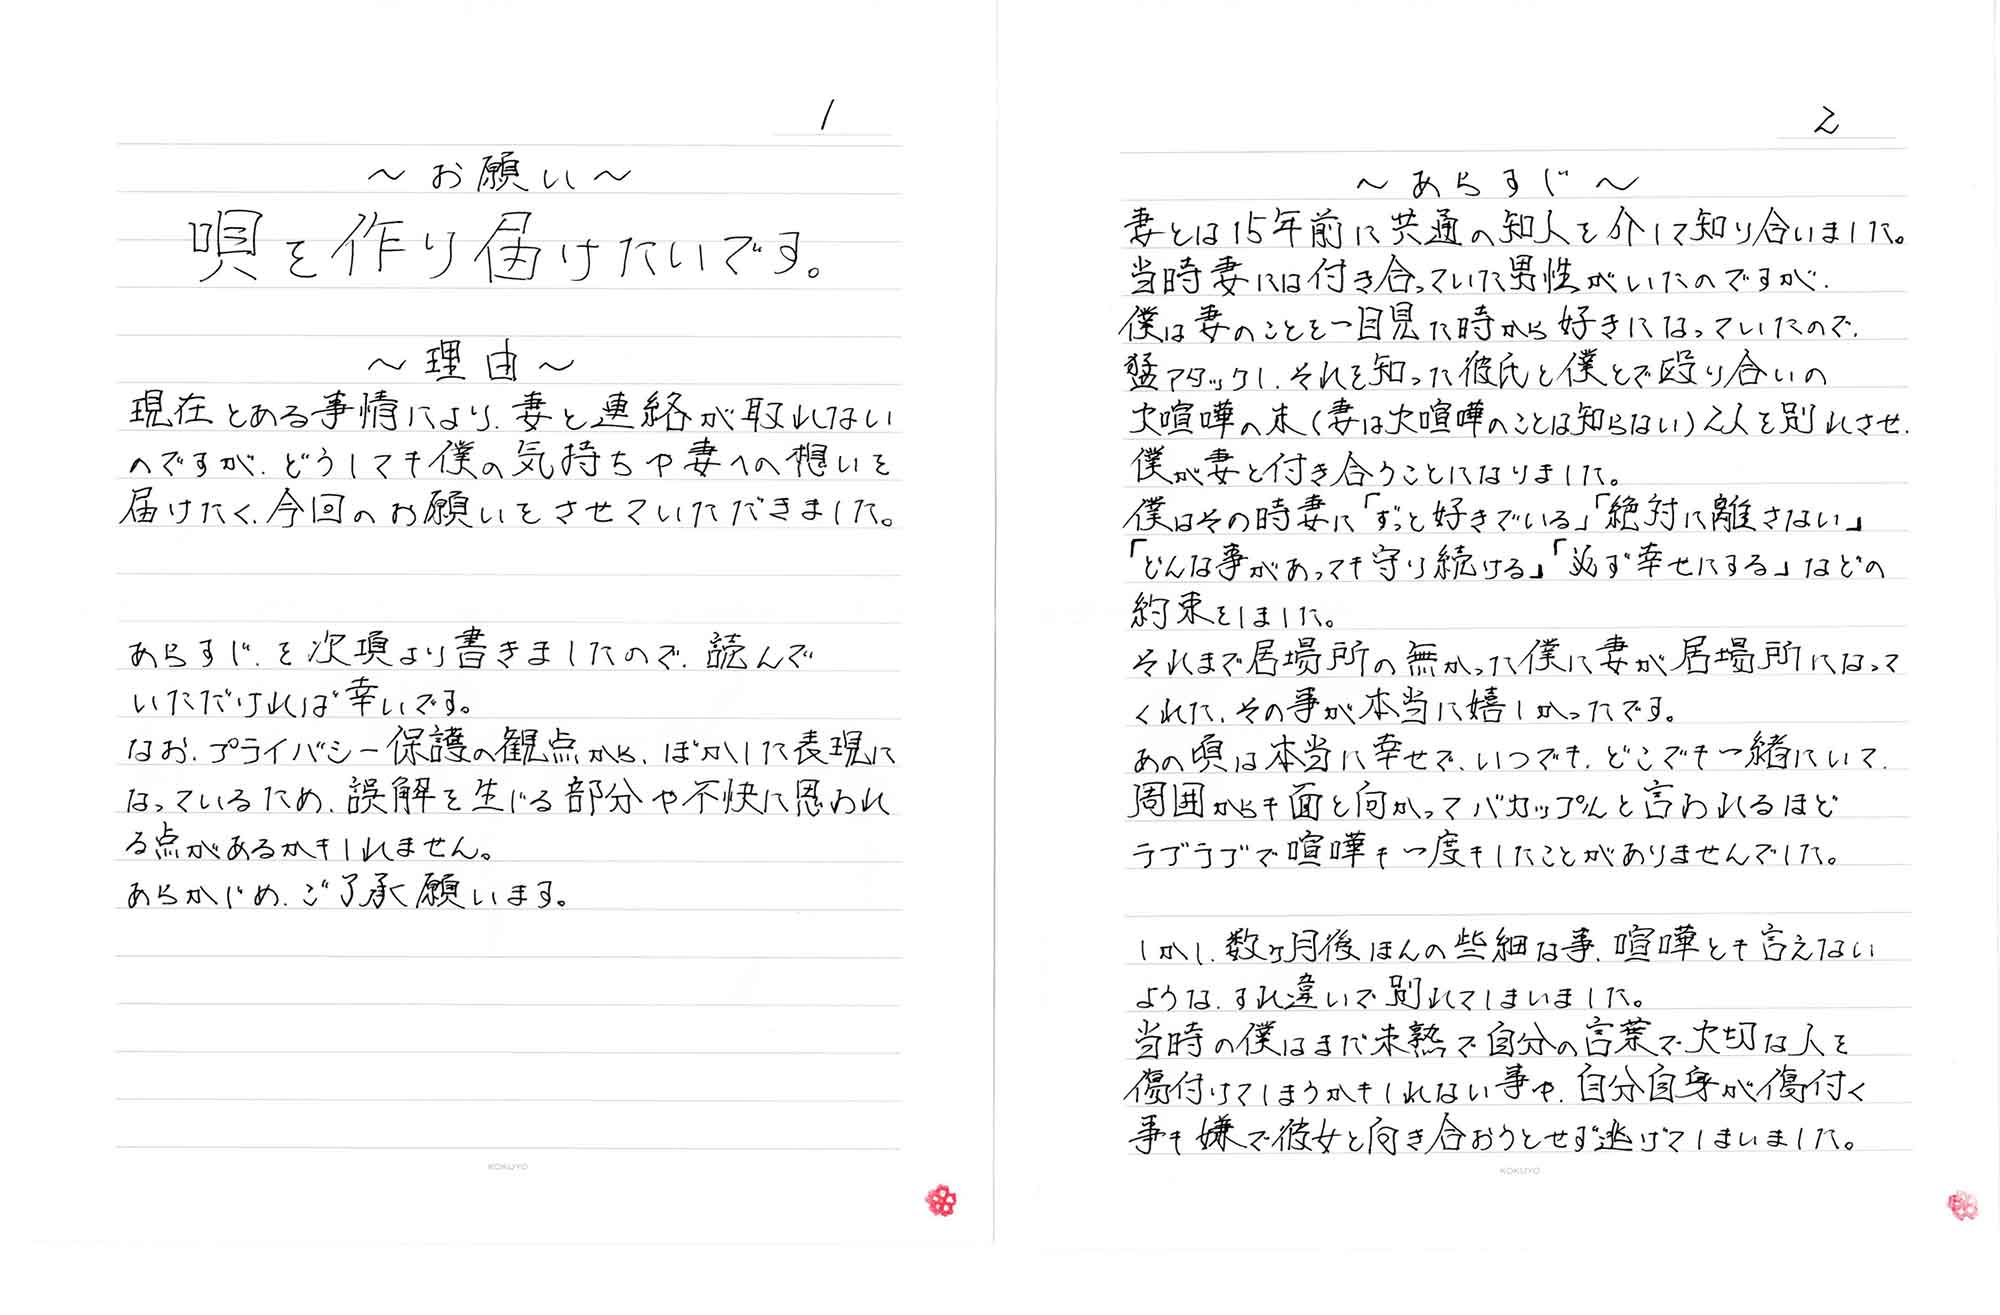 1
～お願い～
唄を作り届けたいです。
～理由～
現在とある事情により、妻と連絡が取れない
のですが、どうしても僕の気持ちや妻への想いを
届けたく、今回のお願いをさせていただきました。
あらすじ、を次項より書きましたので、読んで
いただければ幸いです。
なお、プライバシー保護の観点から、ぼかした表現に
なっているため、誤解を生じる部分や不快に思われ
る点があるかもしれません。
あらかじめ、ご了承願います。
KOKUYO
2
～あらすじ～
妻とは15年前に共通の知人を介して知り合いました。
当時妻には付き合っていた男性がいたのですが、
僕は妻のことを一目見た時から好きになっていたので、
猛アタックし、それを知った彼氏と僕とで殴り合いの
大喧嘩の末(妻は大喧嘩のことは知らない)2人を別れさせ、
僕が妻と付き合うことになりました。
僕はその時妻に「ずっと好きでいる」「絶対に離さない」
「どんな事があっても守り続ける」「必ず幸せにする」などの
約束をしました。
それまで居場所の無かった僕に妻が居場所になって
くれた、その事が本当に嬉しかったです。
あの頃は本当に幸せで、いつでも、どこでも一緒にいて、
周囲からも面と向かってバカップルと言われるほど
ラブラブで喧嘩も一度もしたことがありませんでした。
しかし、数ヶ月後ほんの些細な事、喧嘩とも言えない
ような、すれ違いで別れてしまいました。
当時の僕はまだ未熟で自分の言葉で、大切な人を
傷付けてしまうかもしれない事や、自分自身が傷付く
事も嫌で彼女と向き合おうとせず逃げてしまいました。
KOKUYO